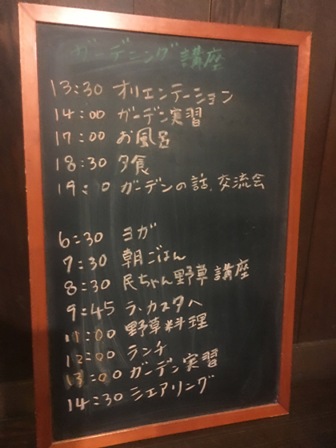 ガーデニング講座
13:30 オリエンテーション
14:00 ガーデン実習
17:00 お風呂
18:30 夕食
ガーデンの話、交流会
6:30 ヨガ
7:30 朝ごはん
8:30 民ちゃん野草講座
9:45 ラ・カスタへ
11:00 野草料理
12:00 ランチ
13:00 ガーデン実習
14:30 シェアリング